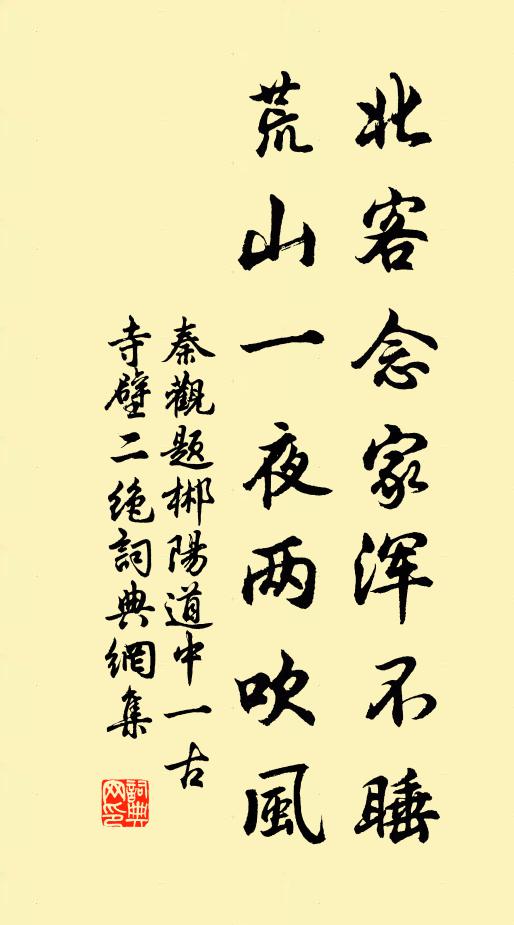 北客念家浑不睡
荒山一夜两吹風
秦觀题郴陽道中一古
寺壁二绝詞典網集
詞典网印